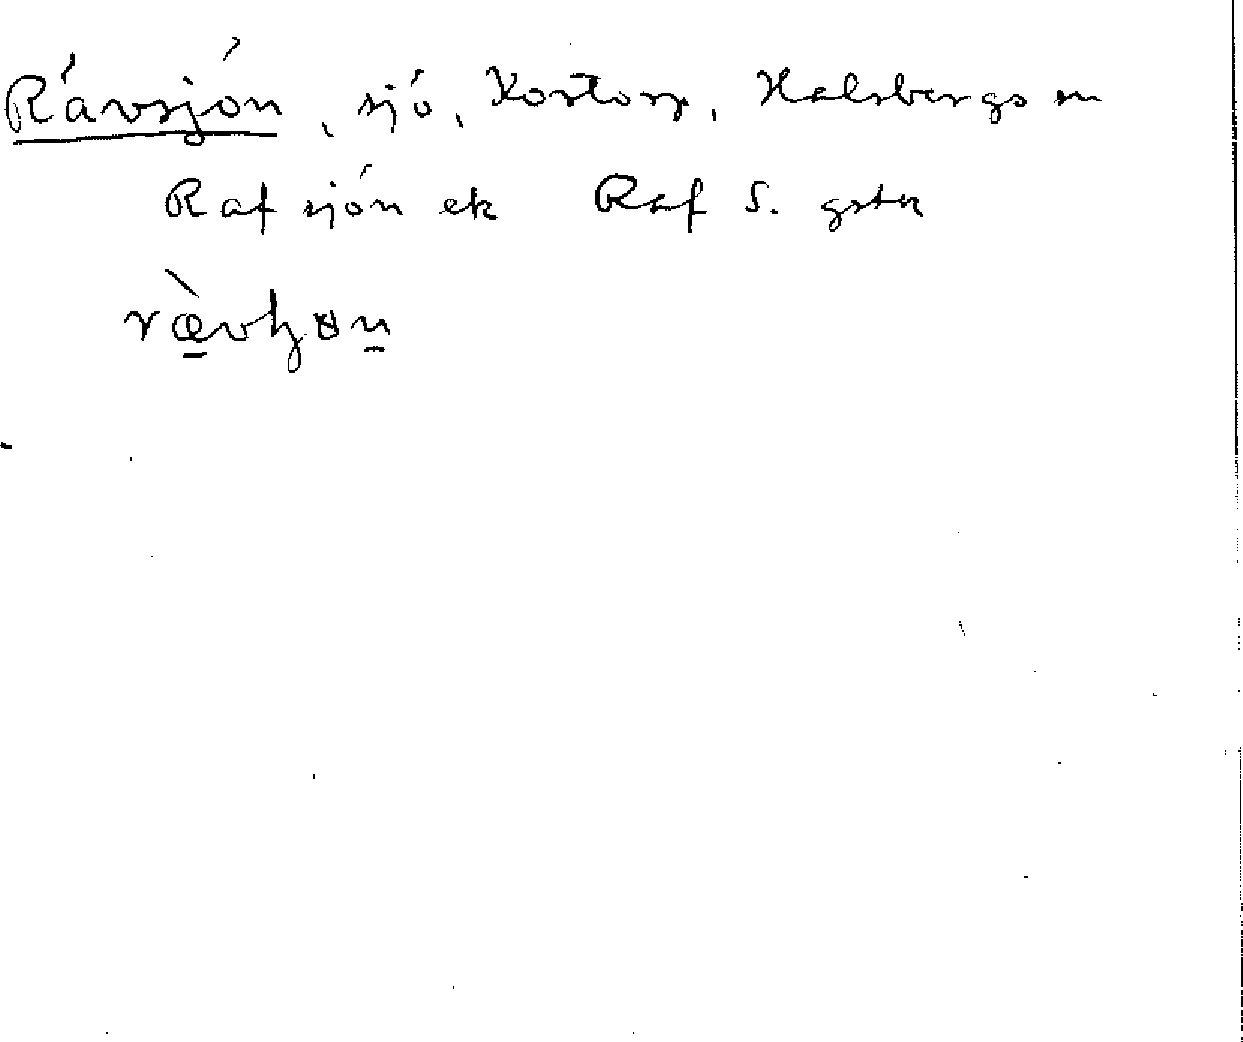 Rävsjön, sjö, Kortorp, Halsbergs sn
Raf sjön ek Raf S. gstn